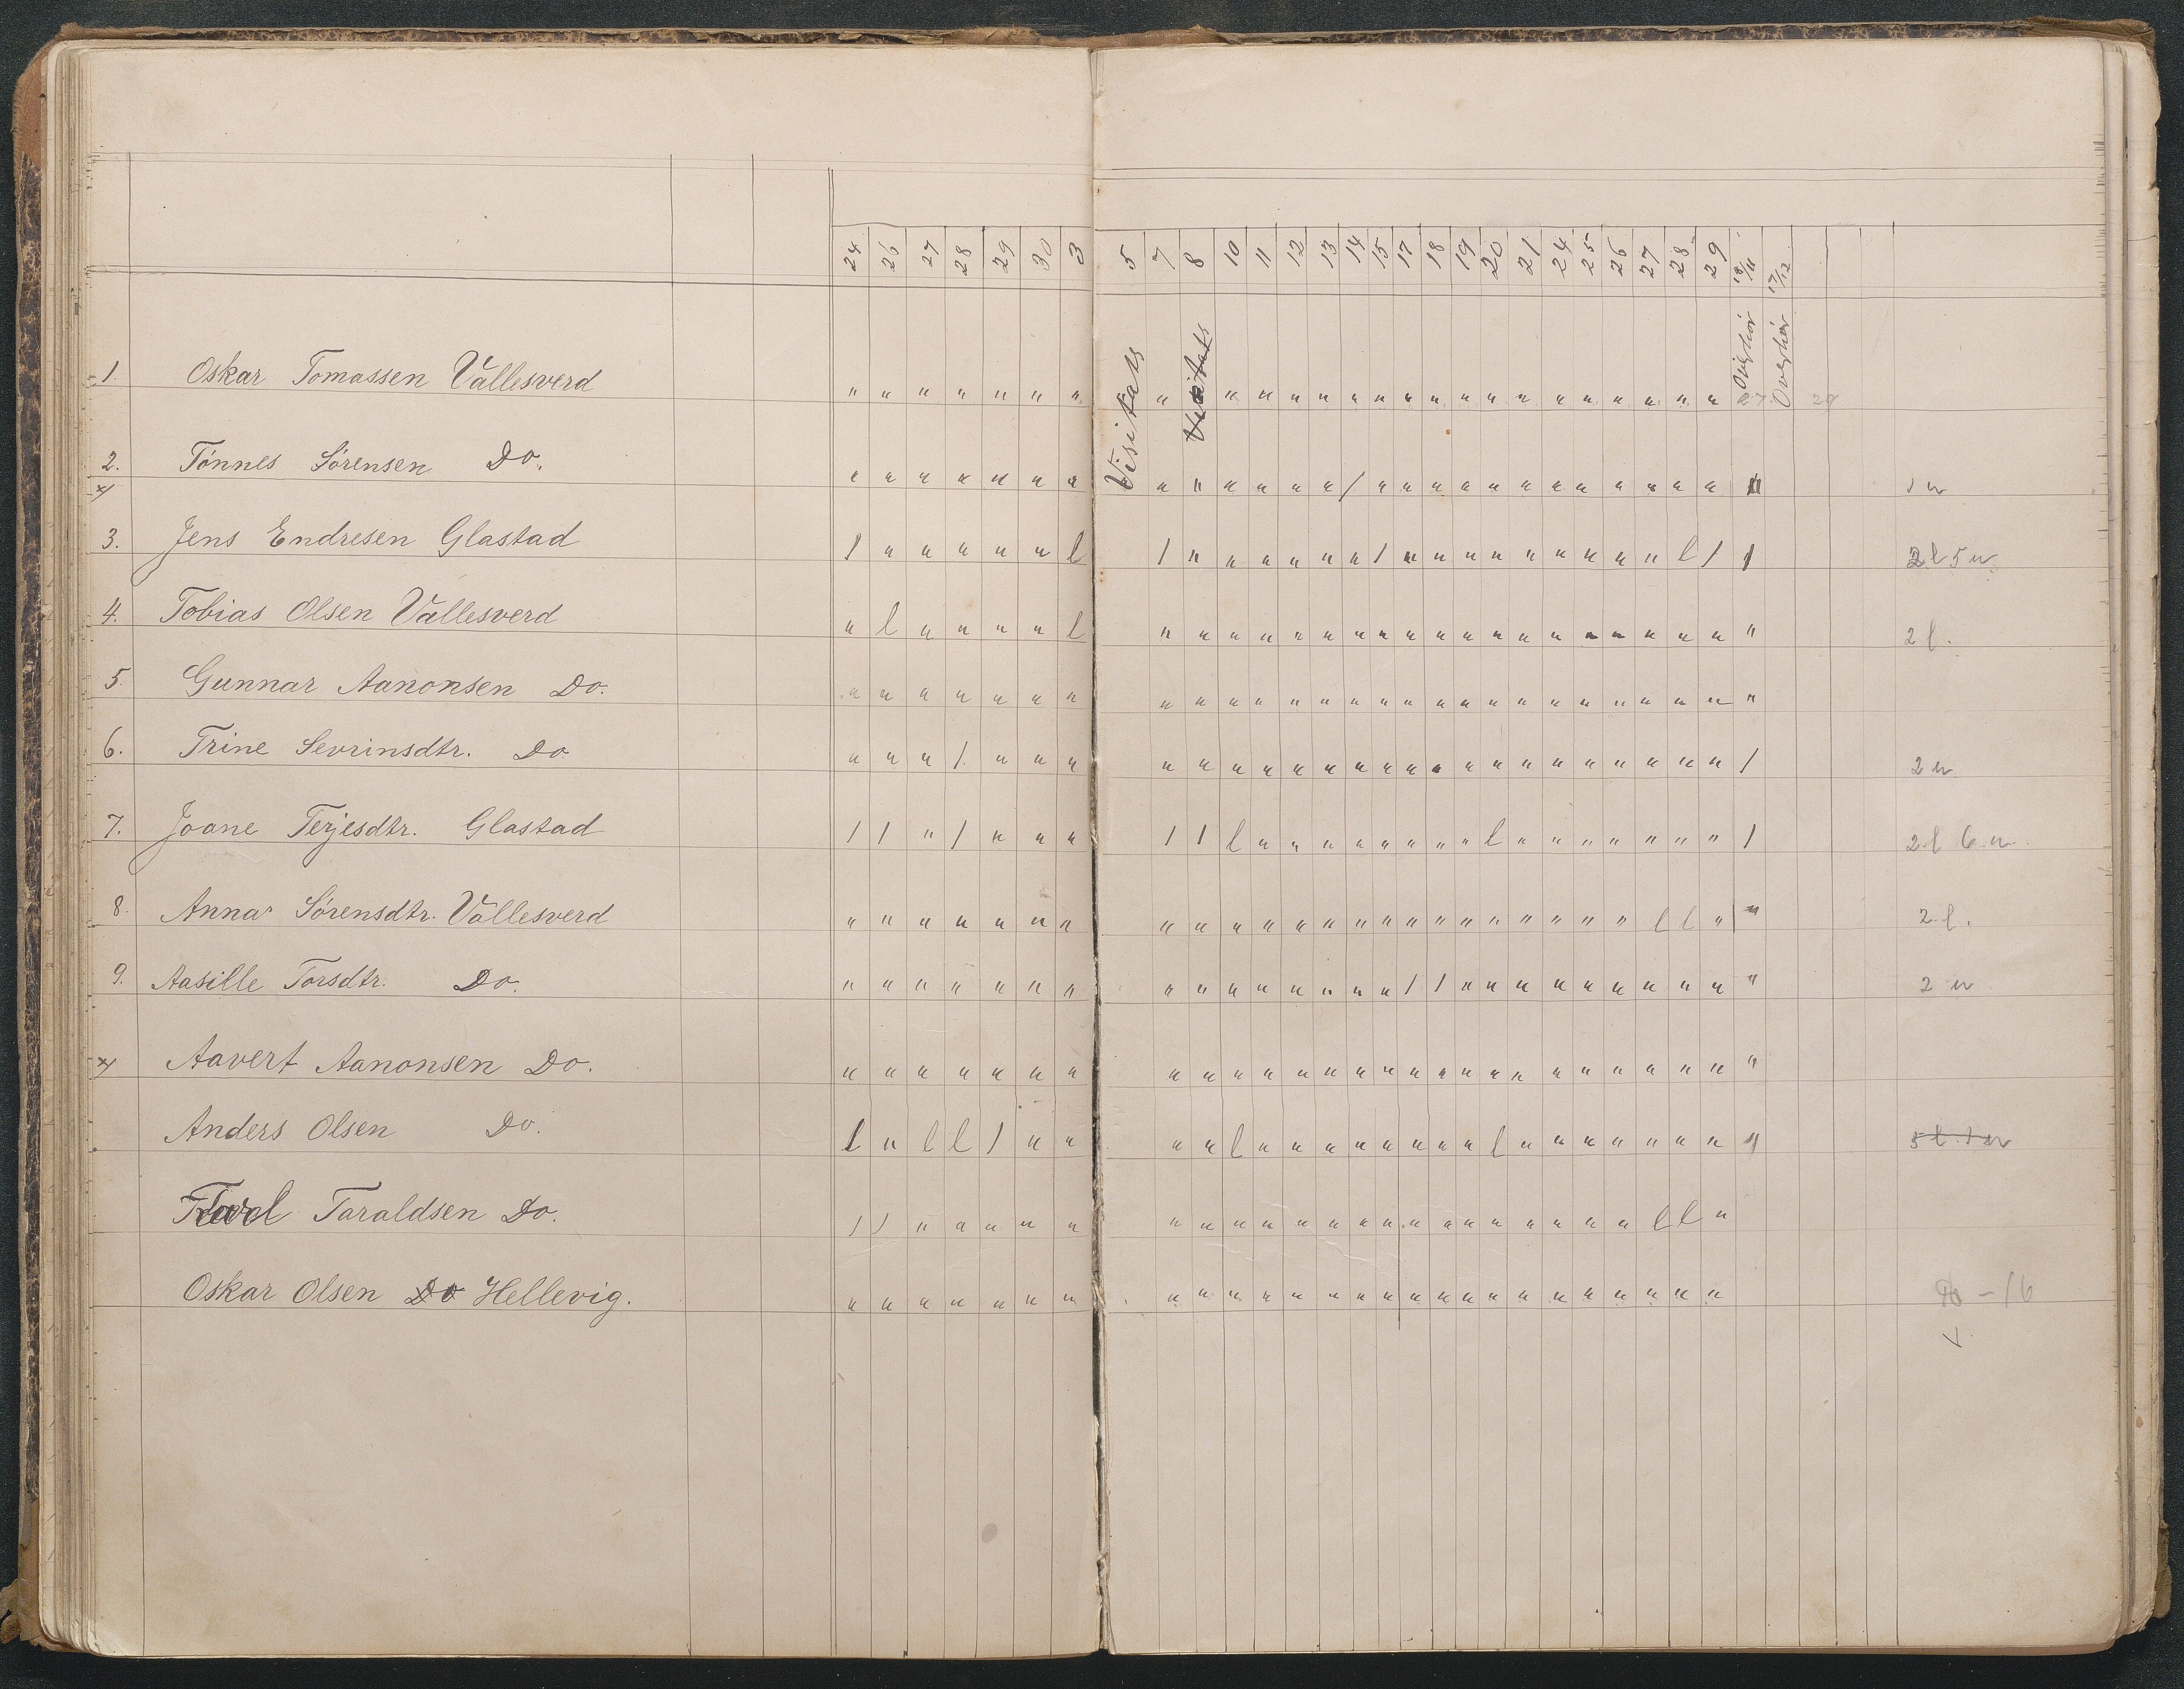 24 26 27 28 29 30 3 5 7 8 10 11 12 13 14 15 17 18 19 20 21 24 25 26 27 28 29 18/11 17/12
Visitats Visitats Overhör Overhör
1. Oskar Tomassen Vallesverd " " " " " " " " " " " " " " " " " " " " " " " " " " 27 29
2. Tönnes Sörensen Do. " " " " " " " " " " " " " / " " " " " " " " " " " " " 1 u
3. Jens Endresen Glastad / " " " " " l / " " " " " " / " " " " " " " " " l / / 2 l 5 u.
4. Tobias Olsen Vallesverd " l " " " " l " " " " " " " " " " " " " " " " " " " " 2 l.
5. Gunnar Aanonsen Do. " " " " " " " " " " " " " " " " " " " " " " " " " " "
6. Trine Sevrinsdtr. Do " " " / " " " " " " " " " " " " " " " " " " " " " " / 2 u
7. Joane Terjesdtr. Glastad / / " / " " " / / l " " " " " " " " l " " " " " " " / 2 l 6 u.
8. Anna Sörensdtr. Vallesverd " " " " " " " " " " " " " " " " " " " " " " " l l " " 2. l.
9. Aasille Torsdtr. Do. " " " " " " " " " " " " " " " / / " " " " " " " " " " 2 u
Aavert Aanonsen Do. " " " " " " " " " " " " " " " " " " " " " " " " " " "
Anders Olsen Do. l " l l / " " " " l " " " " " " " " l " " " " " " " " 5 l. 1 u
Taraldsen Do. / / " " " " " " " " " " " " " " " " " " " " " l l "
Oskar Olsen Do Hellevig. " " " " " " " " " " " " " " " " " " " " " " " " " " – 16